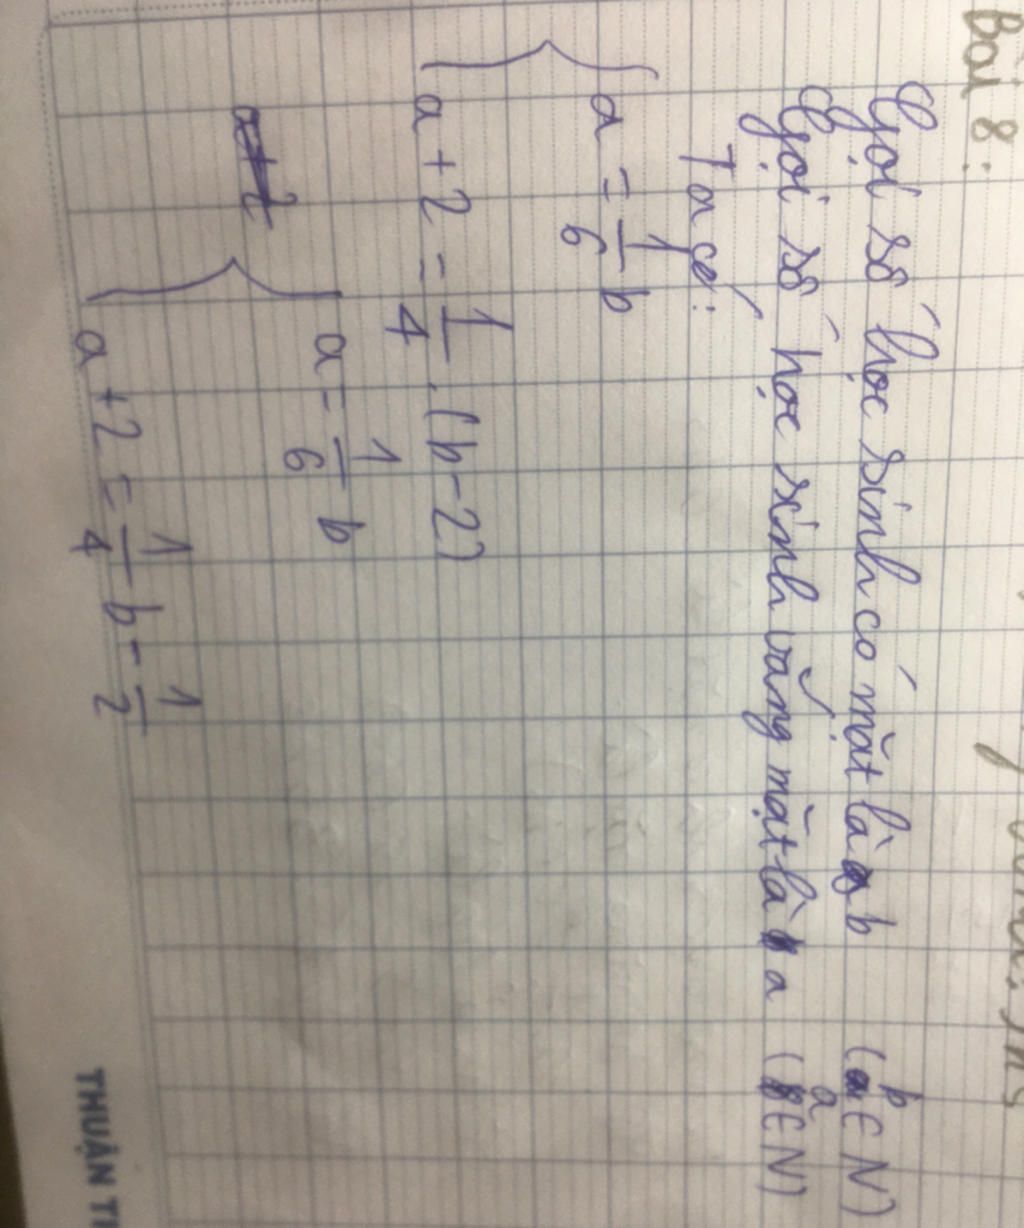 Bài 8:
Gọi số học sinh có mặt là b (b ∈ N)
Gọi số học sinh vắng mặt là a (a ∈ N)
Ta có:
{ a = 1/6 b
a + 2 = 1/4 . (b - 2)
{ a = 1/6 b
a + 2 = 1/4 b - 1/2
THUẬN T